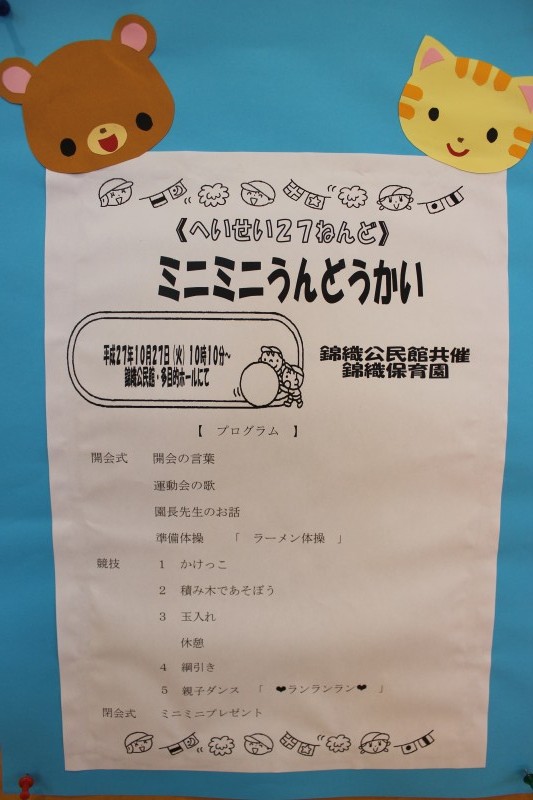 《へいせい27ねんど》
ミニミニうんどうかい
平成27年10月27日(火)10時10分~
錦織公民館・多目的ホールにて
錦織公民館共催
錦織保育園
【 プログラム 】
開会式 開会の言葉
運動会の歌
園長先生のお話
準備体操 「 ラーメン体操 」
競技 1 かけっこ
2 積み木であそぼう
3 玉入れ
休憩
4 綱引き
5 親子ダンス 「 ❤ランランラン❤ 」
閉会式 ミニミニプレゼント